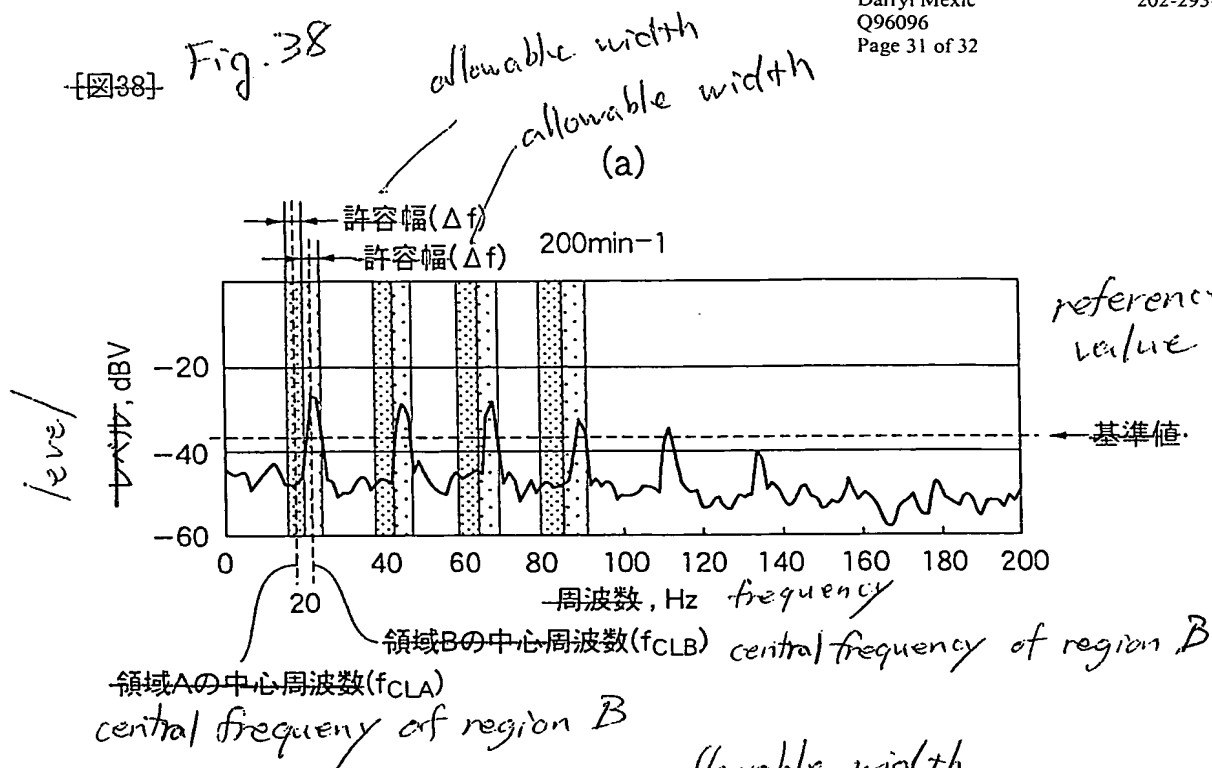 Darryl Mexic 202-293-
Q96096
Page 31 of 32
[図38] Fig. 38
allowable width
allowable width
(a)
許容幅(Δf)
許容幅(Δf) 200min-1
reference
value
レベル, dBV
level
-20
-40
-60
基準値
0 20 40 60 80 100 120 140 160 180 200
周波数, Hz frequency
領域Bの中心周波数(fCLB) central frequency of region B
領域Aの中心周波数(fCLA)
central frequeny of region B
allowable width